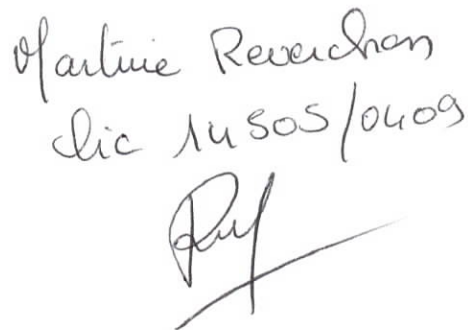 Martine Reverchon
Lic 14505/0409